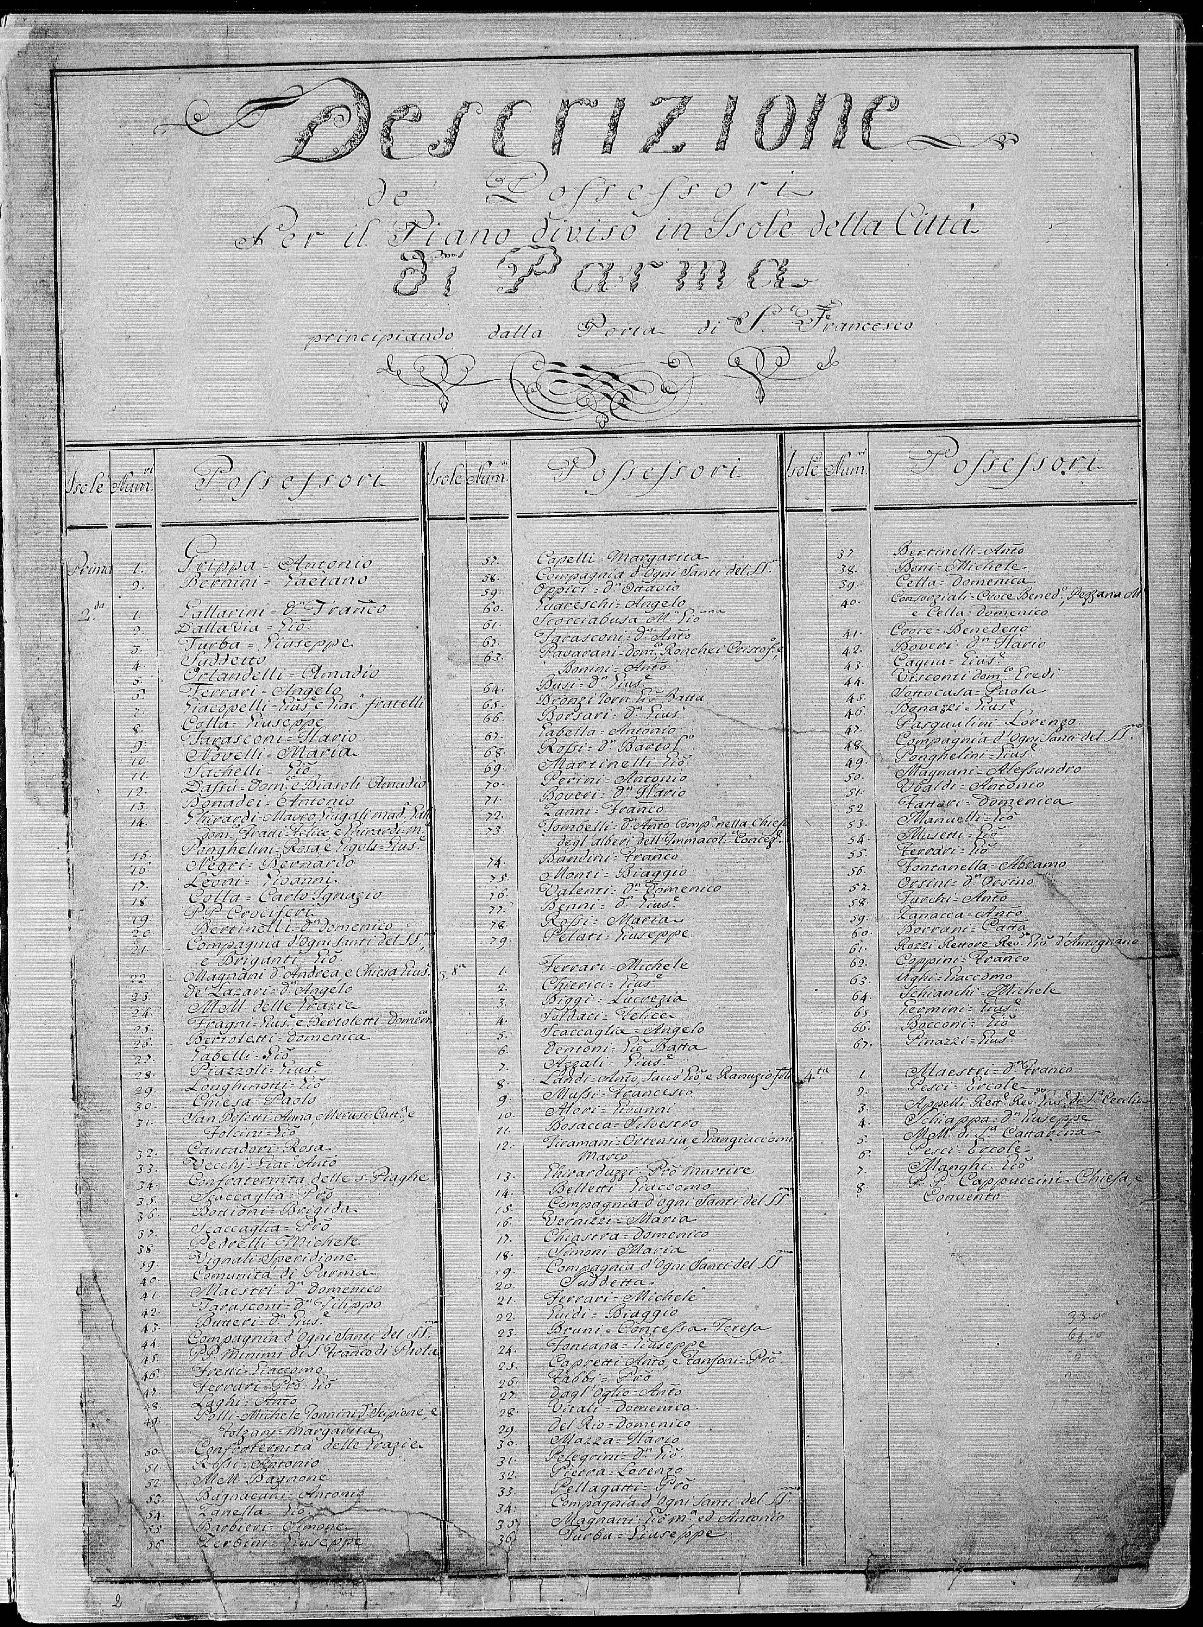 Descrizione
de' Possessori
Per il Piano diviso in Isole della Città
Di Parma
principiando dalla Porta di S.n Francesco
Isole Num.ri Possessori
Prima 1. Grippa = Antonio
2. Bernini = Gaetano
2.da 1. Gallarini = D.n Franco
2. Dalla Via = Gio
3. Turba = Giuseppe
4. Suddetto
5. Orlandelli = Amadio
Ferrari = Angelo
7. Giacopelli = Gius.e Giac. fratelli
8. Calla = Giuseppe
9. Tarasconi = Ilario
10. Novelli = Maria
11. Sachelli = Gio
12. Dasta = Dom.o e Biaroli Amadio
13. Bonadei = Antonio
14. Ghirardi = Mauro,
15. Ponghelini = Rosa e Gius.e
16. Negri = Bernardo
17. Leoni = Gioanni
18. Cotta = Carlo Ignazio
19. P.P. Crociferi
20. Bertinelli = D.n Domenico
21. Compagnia d'Ogni Santi del SS.mo
e Briganti Gio
22. Magnani D.n Andrea, e Chiesa Gius.e
23. de Lazari = D.n Angelo
24. MM delle Grazie
25. Fragni = Gius.e e Bertoletti = Domen.
26. Bertoletti = Domenica
27. Gabelli = Gio
28. Piazzoli = Gius.e
29. Longhinotti = Gio
30. Chiesa = Paolo
31. San Anna,
Gio
32. Cantadori = Rosa
33. Vecchj = Giac. Anto
34. Confraternita delle 5. Piaghe
35. Scaccaglia = Pro
36. Bottioni = Brigida
37. Scaccaglia = Pro
38. Pedretti = Michele
39. Vignali = Speridione
40. Comunità di Parma
41. Maestri = D.n Domenico
42. Tarasconi = D.n Filippo
43. Butteri = D.n Gius.e
44. Compagnia d'Ogni Santi del SS.mo
45. P.P. Minimi di S. Franco di Paola
46. Fretti = Giacomo
47. Ferrari = Pro Gio
48. Laghi = Anto
49. Polli = Michele
Margarita
50. Confraternita delle Grazie
51. Rossi = Antonio
52. MM Bagnone
53. Bagnacani = Antonio
54. Zanella = Gio
55. Barbieri = Simone
56. Zerbini = Giuseppe
Isole Num.ri Possessori
57. Capelli = Margarita
58. Compagnia d'Ogni Santi del SS.mo
59. Oppici = D.n Ottavio
60. Guareschi = Angelo
61. Scocciabusa M.a Gio
62. Tarasconi = D.n Anto
63. Pavarani = Dom. Ronchei Cristof. e
Bonini = Anto
64. Busi = D.n Gius.e
65. Bronzi Gio = Batta
66. Borsari = D.n Gius.e
67. Gabella = Antonio
68. Rossi = D.n Bartol.o
69. Martinelli Gio
70. Perini = Antonio
71. Boveri = D.n Ilario
72. Zanni = Franco
73. Tombelli = D.n Anto Comp.a nella Chiesa
degl'alberi dell'Immacol. Concez.e
74. Bandini = Franco
75. Monti = Biaggio
76. Valenti = D.n Domenico
77. Benni = D.n Gius.e
78. Rossi = Maria
79. Pelati = Giuseppe
3.za 1. Ferrari = Michele
2. Chierici = Gius.e
3. Biggi = Lucrezia
4. Soldaci = Felice
5. Scaccaglia = Angelo
6. Dentoni = Gio Batta
7. Azzali = Gius.e
8. Landi = Anto, Gio e Ranuzio
9. Mussi = Francesco
10. Alori = Gioanni
11. Bosacca = Silvestro
12. Tiramani = Ortensia, e Giangiaccomo
Marco
13. Ghirarduzzi = Pro Martire
14. Belletti = Giaccomo
15. Compagnia d'Ogni Santi del SS.mo
16. Vernizzi = Maria
17. Chiastra = Domenico
18. Simoni Maria
19. Compagnia d'Ogni Santi del SS.mo
20. Suddetta
21. Ferrari = Michele
22. Guidi = Biaggio
23. Bruni = Contessa Teresa
24. Fontana = Giuseppe
25. Capretti Anto, e Fanfoni = Pro
26. Rabbi = Pro
27. Dagl'Oglio = Anto
28. Vitali = Domenico
29. del Rio = Domenico
30. Mazza = Ilario
31. Pelegrini = D.n Gio
32. Pietra = Lorenzo
33. Pellagatti = Pro
34. Compagnia d'Ogni Santi del SS.mo
35. Magnani = Gio M.a ed Antonio
36. Turba = Giuseppe
Isole Num.ri Possessori
37. Bertinelli = Anto
38. Boni = Michele
39. Cella = Domenica
40. Consorziali = Croce Bened., Pezzana M.
e Cella = Domenico
41. Croce = Benedetto
42. Boveri = D.n Ilario
43. Cagna = Gius.e
44. Visconti Dom.o Eredi
45. Sottocasa = Paola
46. Bonazzi = Gius.e
47. Pasqualini = Lorenzo
48. Compagnia d'Ogni Santi del SS.mo
49. Ponghelini = Gius.e
50. Magnani = Alessandro
51. Ubaldi = Antonio
52. Fattori = Domenica
53. Manuelli = Gio
54. Musetti = Gio
55. Ferrari = Gio
56. Fontanella = Abramo
57. Orsini = D.n Orsino
58. Jacchi = Anto
59. Zanacca = Anto
60. Borrani = Catta
61. Rozzi Rettore Rev. Gio d'Armagnano
62. Coppini = Franco
63. Ughi = Giaccomo
64. Schianchi = Michele
65. Germini = Gius.e
66. Bocconi = Gio
67. Pinazzi = Gius.e
4.ta 1. Maestri = D.n Franco
2. Pesci = Ercole
3. Appelli Rea.e Rev. Gius.e di S.a Cecilia
4. Schiappa = D.n Giuseppe
5. MM di S.a Cattarina
6. Pesci = Ercole
7. Manghi = Gio
8. P.P. Cappuccini = Chiesa, e
Convento
2